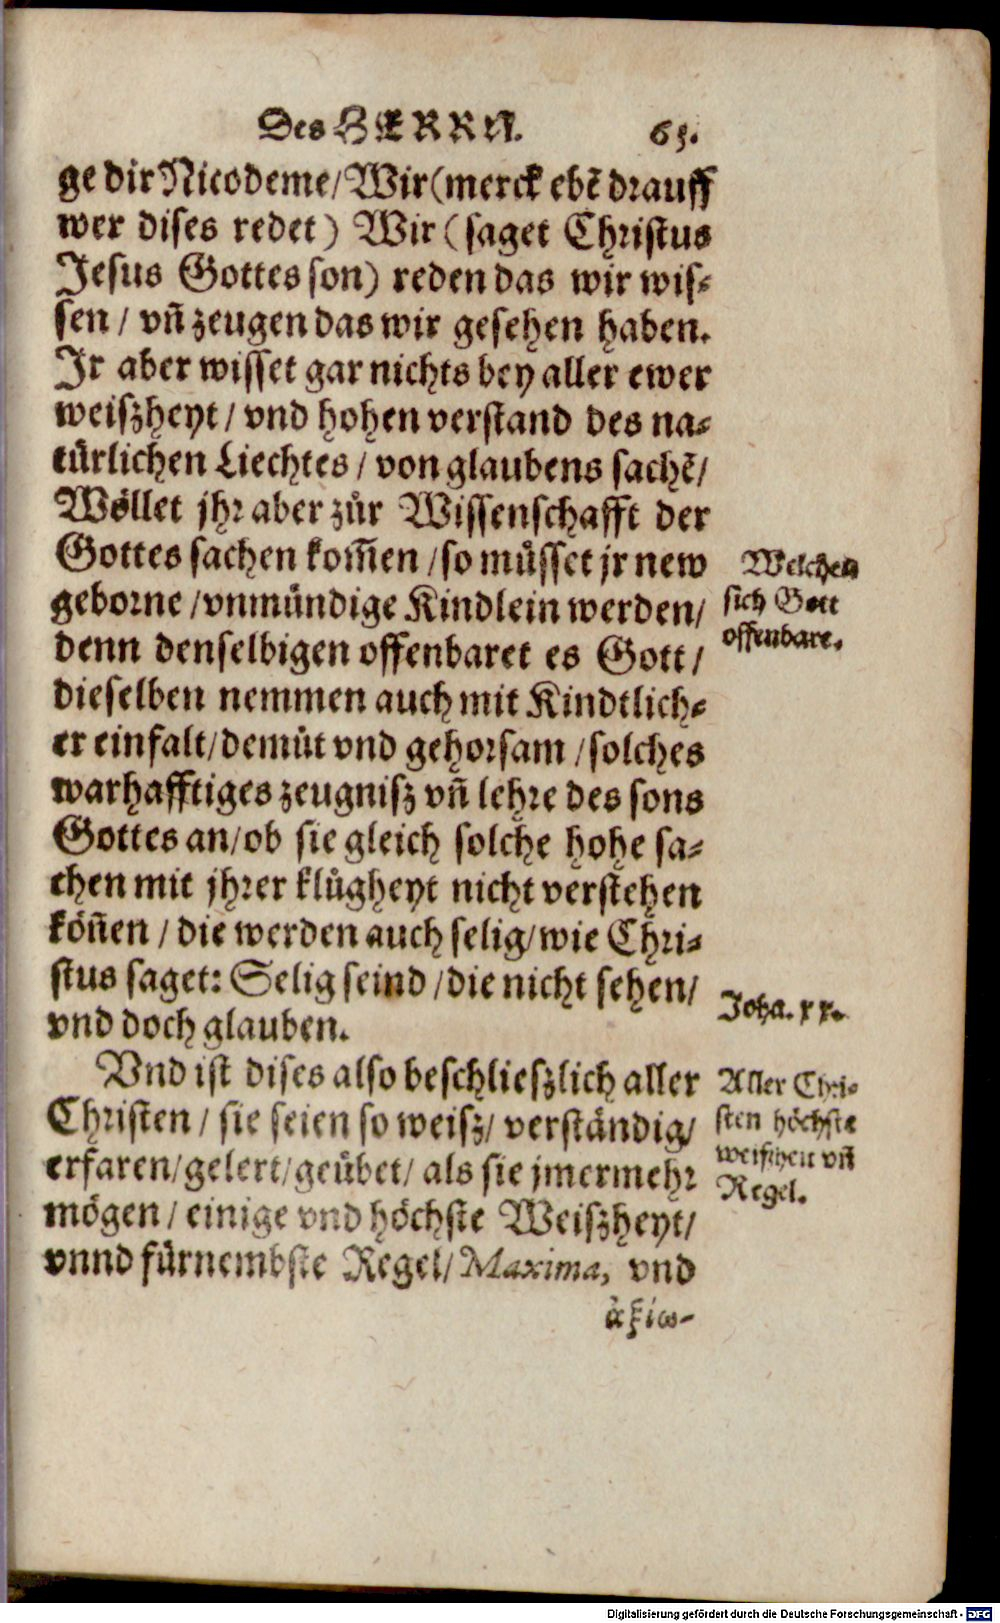 Des HERRN. 65.
ge dir Nicodeme/Wir(merck ebẽ drauff
wer dises redet) Wir (saget Christus
Jesus Gottes son) reden das wir wis-
sen / vñ zeugen das wir gesehen haben.
Jr aber wisset gar nichts bey aller ewer
weiszheyt / vnd hohen verstand des na-
türlichen Liechtes / von glaubens sachẽ/
Wöllet jhr aber zůr Wissenschafft der
Gottes sachen kom̃en /so můsset jr new
geborne /vnmündige Kindlein werden/
denn denselbigen offenbaret es Gott /
dieselben nemmen auch mit Kindtlich-
er einfalt/demůt vnd gehorsam /solches
warhafftiges zeugnisz vñ lehre des sons
Gottes an/ob sie gleich solche hohe sa-
chen mit jhrer klůgheyt nicht verstehen
köñen / die werden auch selig/wie Chri-
stus saget: Selig seind /die nicht sehen/
vnd doch glauben.
Vnd ist dises also beschlieszlich aller
Christen / sie seien so weisz/ verständig/
erfaren/gelert/geübet/ als sie jmermehr
mögen / einige vnd höchste Weiszheyt/
vnnd fürnembste Regel/ Maxima, vnd
ἀξιω-
Welchen
sich Gott
offenbare.
Joha. xx.
Aller Chri-
sten höchste
weiszheit vñ
Regel.
Digitalisierung gefördert durch die Deutsche Forschungsgemeinschaft - DFG